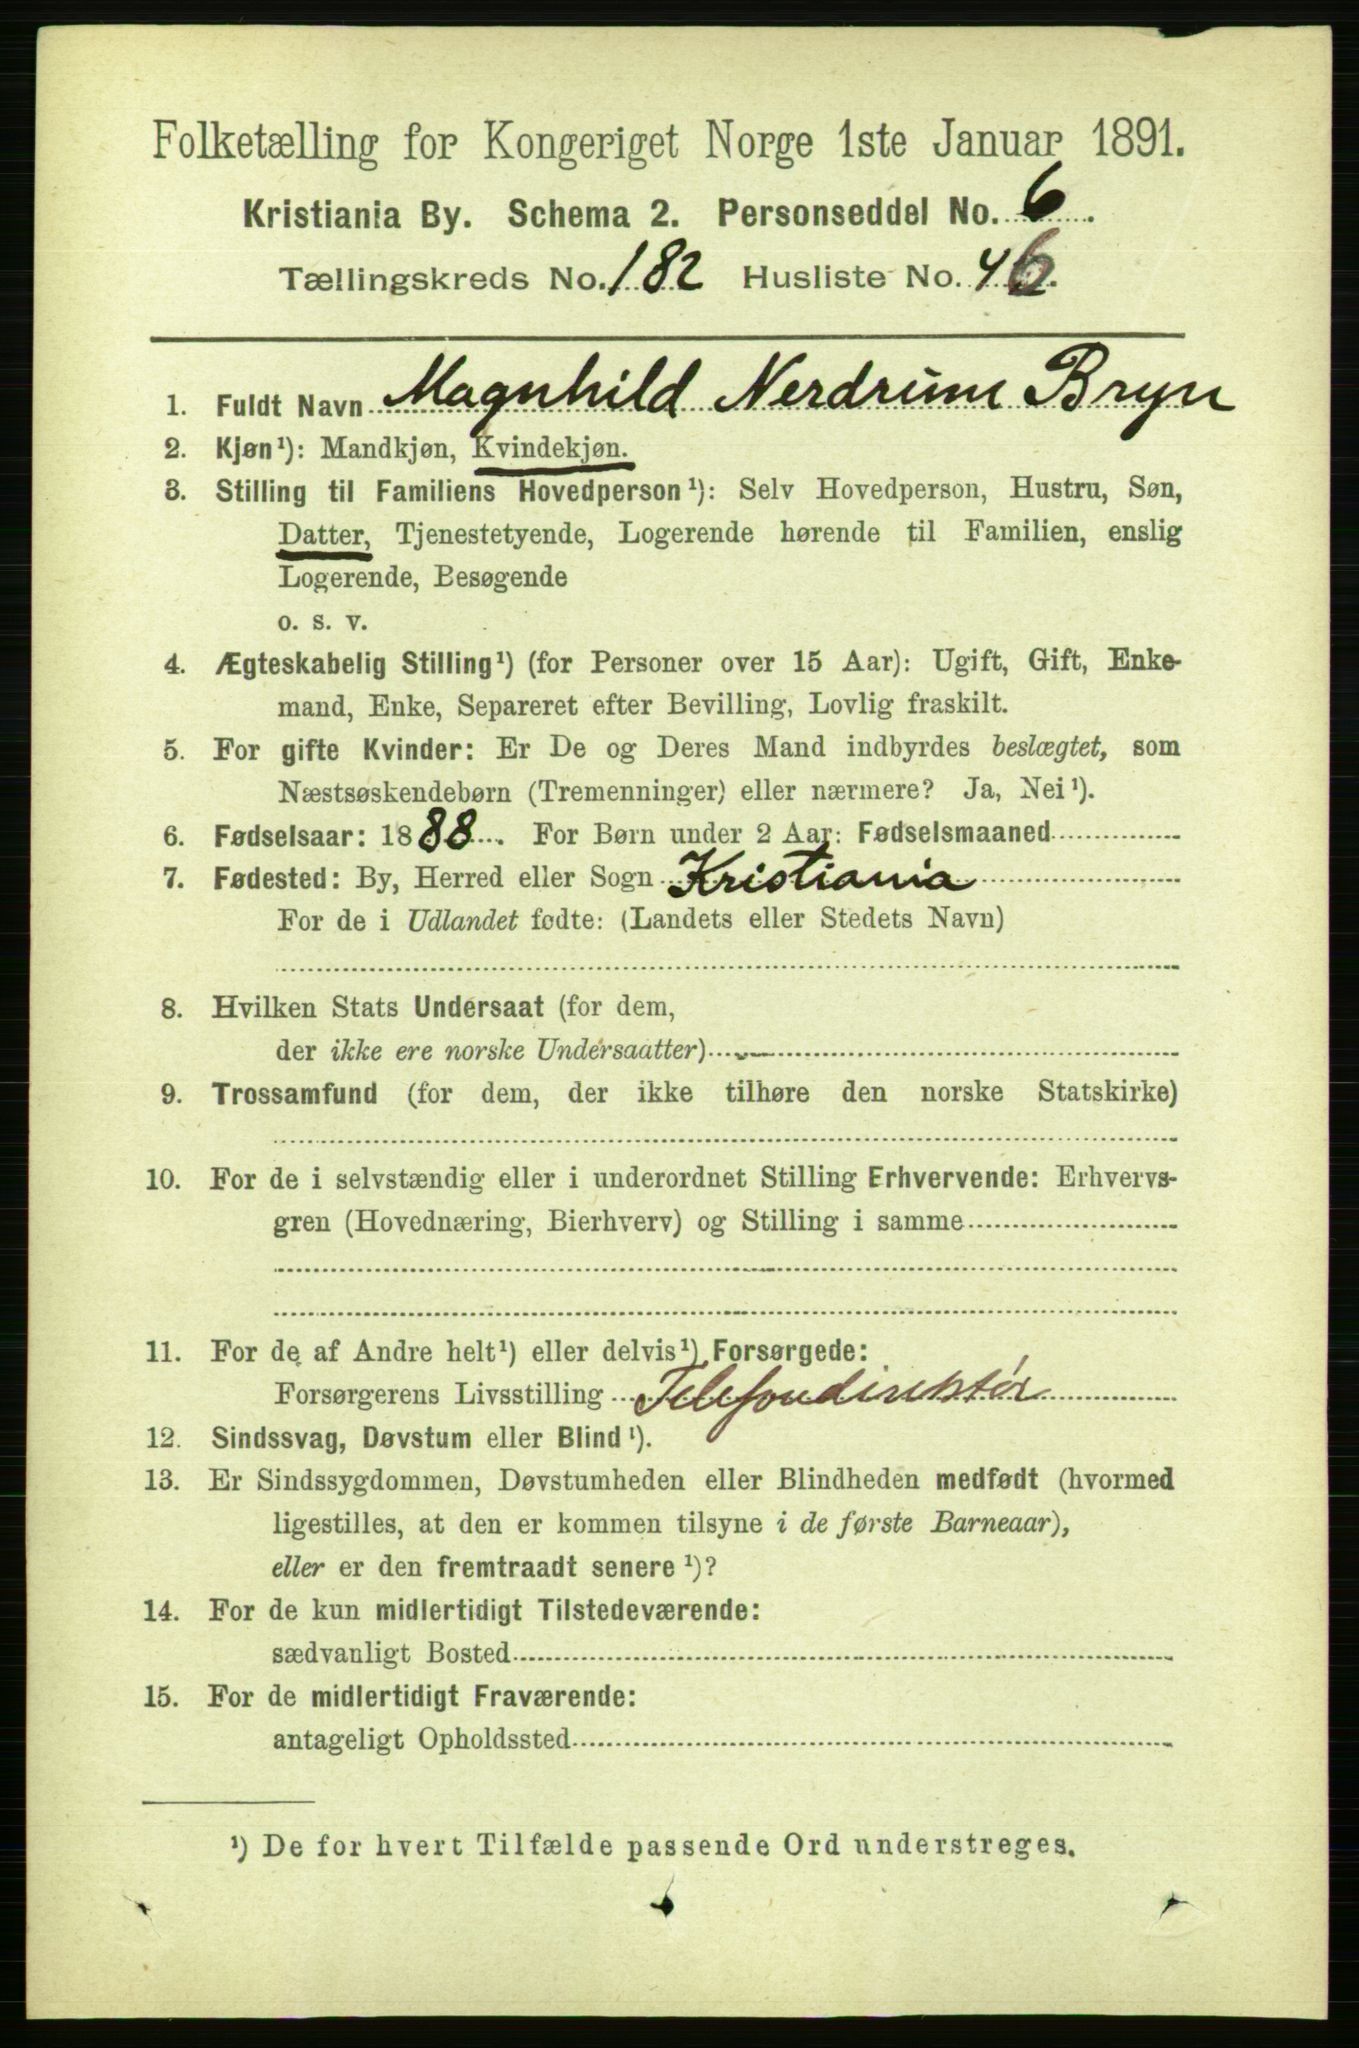 Folketælling for Kongeriget Norge 1ste Januar 1891.
Kristiania By. Schema 2. Personseddel No. 6.
Tællingskreds No. 182 Husliste No. 46.
1. Fuldt Navn Magnhild Nerdrum Bryn
2. Kjøn¹): Mandkjøn, Kvindekjøn.
3. Stilling til Familiens Hovedperson¹): Selv Hovedperson, Hustru, Søn,
Datter, Tjenestetyende, Logerende hørende til Familien, enslig
Logerende, Besøgende
o. s. v.
4. Ægteskabelig Stilling¹) (for Personer over 15 Aar): Ugift, Gift, Enke-
mand, Enke, Separeret efter Bevilling, Lovlig fraskilt.
5. For gifte Kvinder: Er De og Deres Mand indbyrdes beslægtet, som
Næstsøskendebørn (Tremenninger) eller nærmere? Ja, Nei¹).
6. Fødselsaar: 1888. For Børn under 2 Aar: Fødselsmaaned
7. Fødested: By, Herred eller Sogn Kristiania
For de i Udlandet fødte: (Landets eller Stedets Navn)
8. Hvilken Stats Undersaat (for dem,
der ikke ere norske Undersaatter)
9. Trossamfund (for dem, der ikke tilhøre den norske Statskirke)
10. For de i selvstændig eller i underordnet Stilling Erhvervende: Erhvervs-
gren (Hovednæring, Bierhverv) og Stilling i samme
11. For de af Andre helt¹) eller delvis¹) Forsørgede:
Forsørgerens Livsstilling Telefondirektør
12. Sindssvag, Døvstum eller Blind¹).
13. Er Sindssygdommen, Døvstumheden eller Blindheden medfødt (hvormed
ligestilles, at den er kommen tilsyne i de første Barneaar),
eller er den fremtraadt senere¹)?
14. For de kun midlertidigt Tilstedeværende:
sædvanligt Bosted
15. For de midlertidigt Fraværende:
antageligt Opholdssted
¹) De for hvert Tilfælde passende Ord understreges.